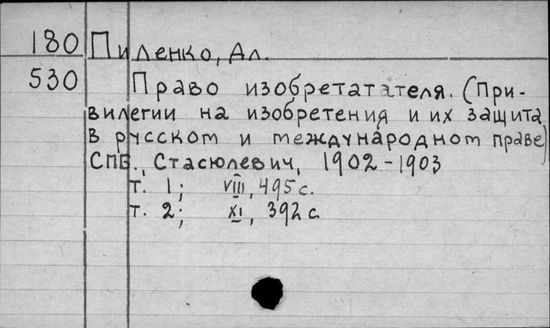 180 Пиленко, Ал.
530 Право изобретатателя. (При-
вилегии на изобретения и их защита
в русском и международном праве)
СПБ., Стасюлевич, 1902-1903
т. 1; VIII, 495 с.
т. 2; XI, 392 с